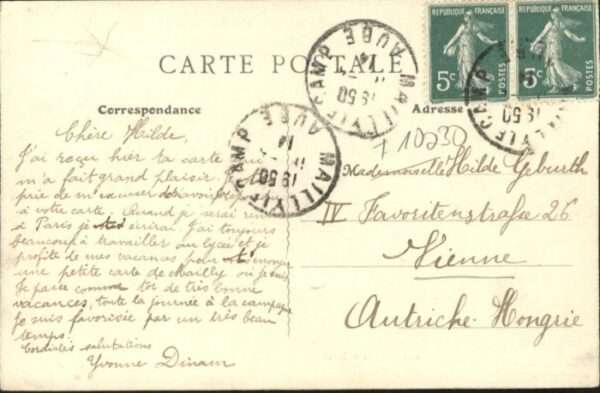 CARTE POSTALE
Correspondance
Adresse
RÉPUBLIQUE FRANÇAISE
5c
POSTES
RÉPUBLIQUE FRANÇAISE
5c
POSTES
MAILLY LE CAMP
AUBE
19 50
MAILLY LE CAMP
AUBE
19 50
14
Chère Hilde,
J'ai reçu hier ta carte qui
m'a fait grand plaisir. Je
prie de m'excuser
à votre carte. Quand je serai
à Paris je t'écrirai. J'ai toujours
beaucoup à travailler au lycée et je
profite de mes vacances pour t'envoyer
une petite carte de Mailly où je suis
Je passe comme toi de très bonne
vacances, toute la journée à la campagne
Je suis favorisée par un très beau
temps.
Cordiales salutations
Yvonne Dinam
10230
Mademoiselle Hilde Geburth
IV Favoritenstraße 26
Vienne
Autriche-Hongrie